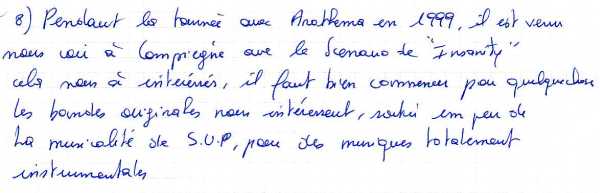 8) Pendant la tournée avec Anathema en 1999, il est venu
nous voir à Compiègne avec le Scenario de "Insanity"
cela nous à intéressés, il faut bien commencer par quelquechose
Les bandes originales nous intéressent, sortir un peu de
La musicalité de S.U.P, pour des musiques totalement
instrumentales